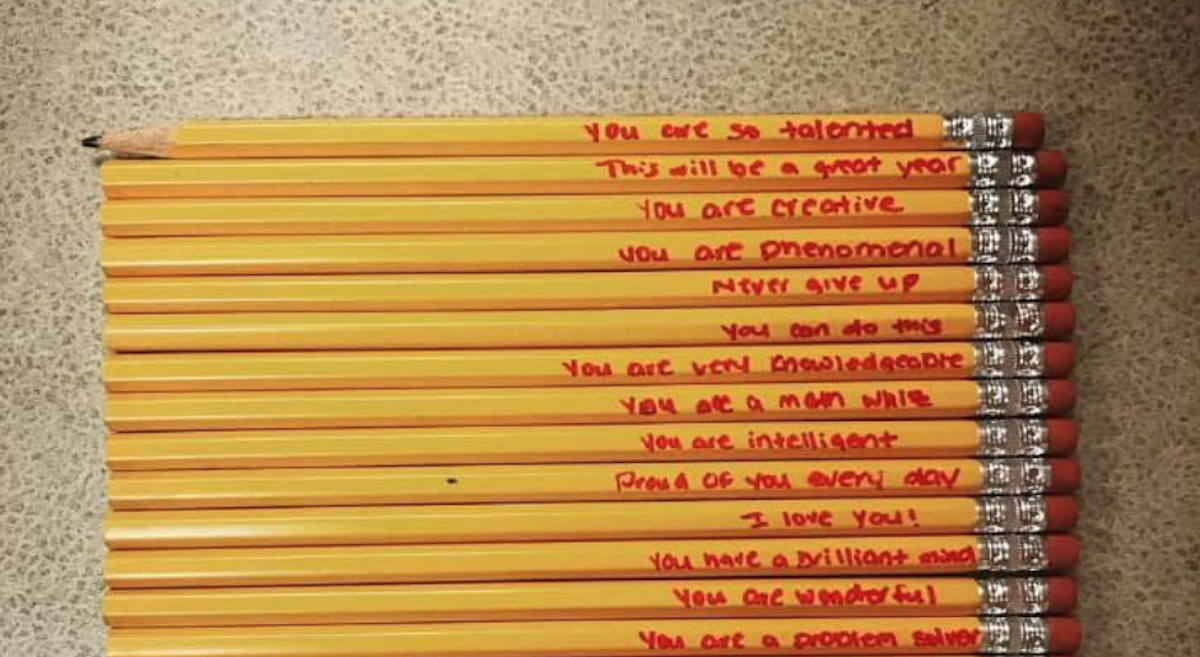 You are so talented
This will be a great year
You are creative
you are phenomenal
Never give up
You can do this
You are very knowledgeable
You are a math whiz
You are intelligent
Proud of you every day
I love you!
You have a brilliant mind
You are wonderful
You are a problem solver